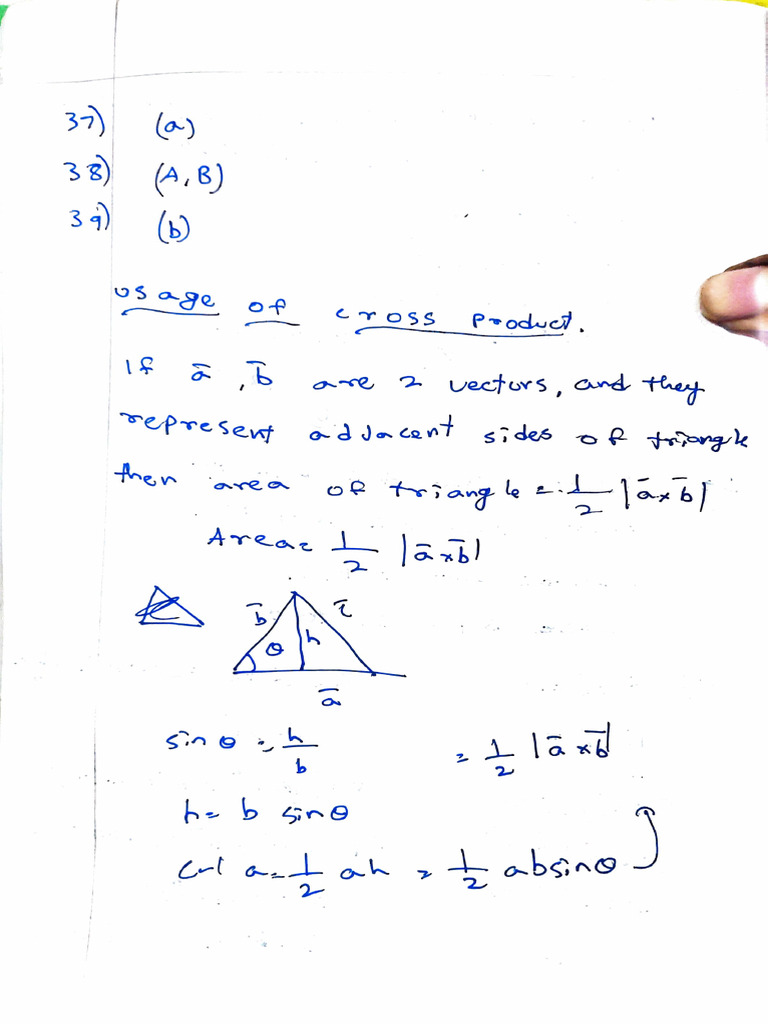 37) (a)
38) (A,B)
39) (b)
usage of cross product.
If a̅, b̅ are 2 vectors, and they
represent adjacent sides of triangle
then area of triangle = 1/2 |a̅×b̅|
Area = 1/2 |a̅×b̅|
b̅ θ h c̅
a̅
sinθ = h/b = 1/2 |a̅×b̅|
h = b sinθ
a = 1/2 ah = 1/2 absinθ